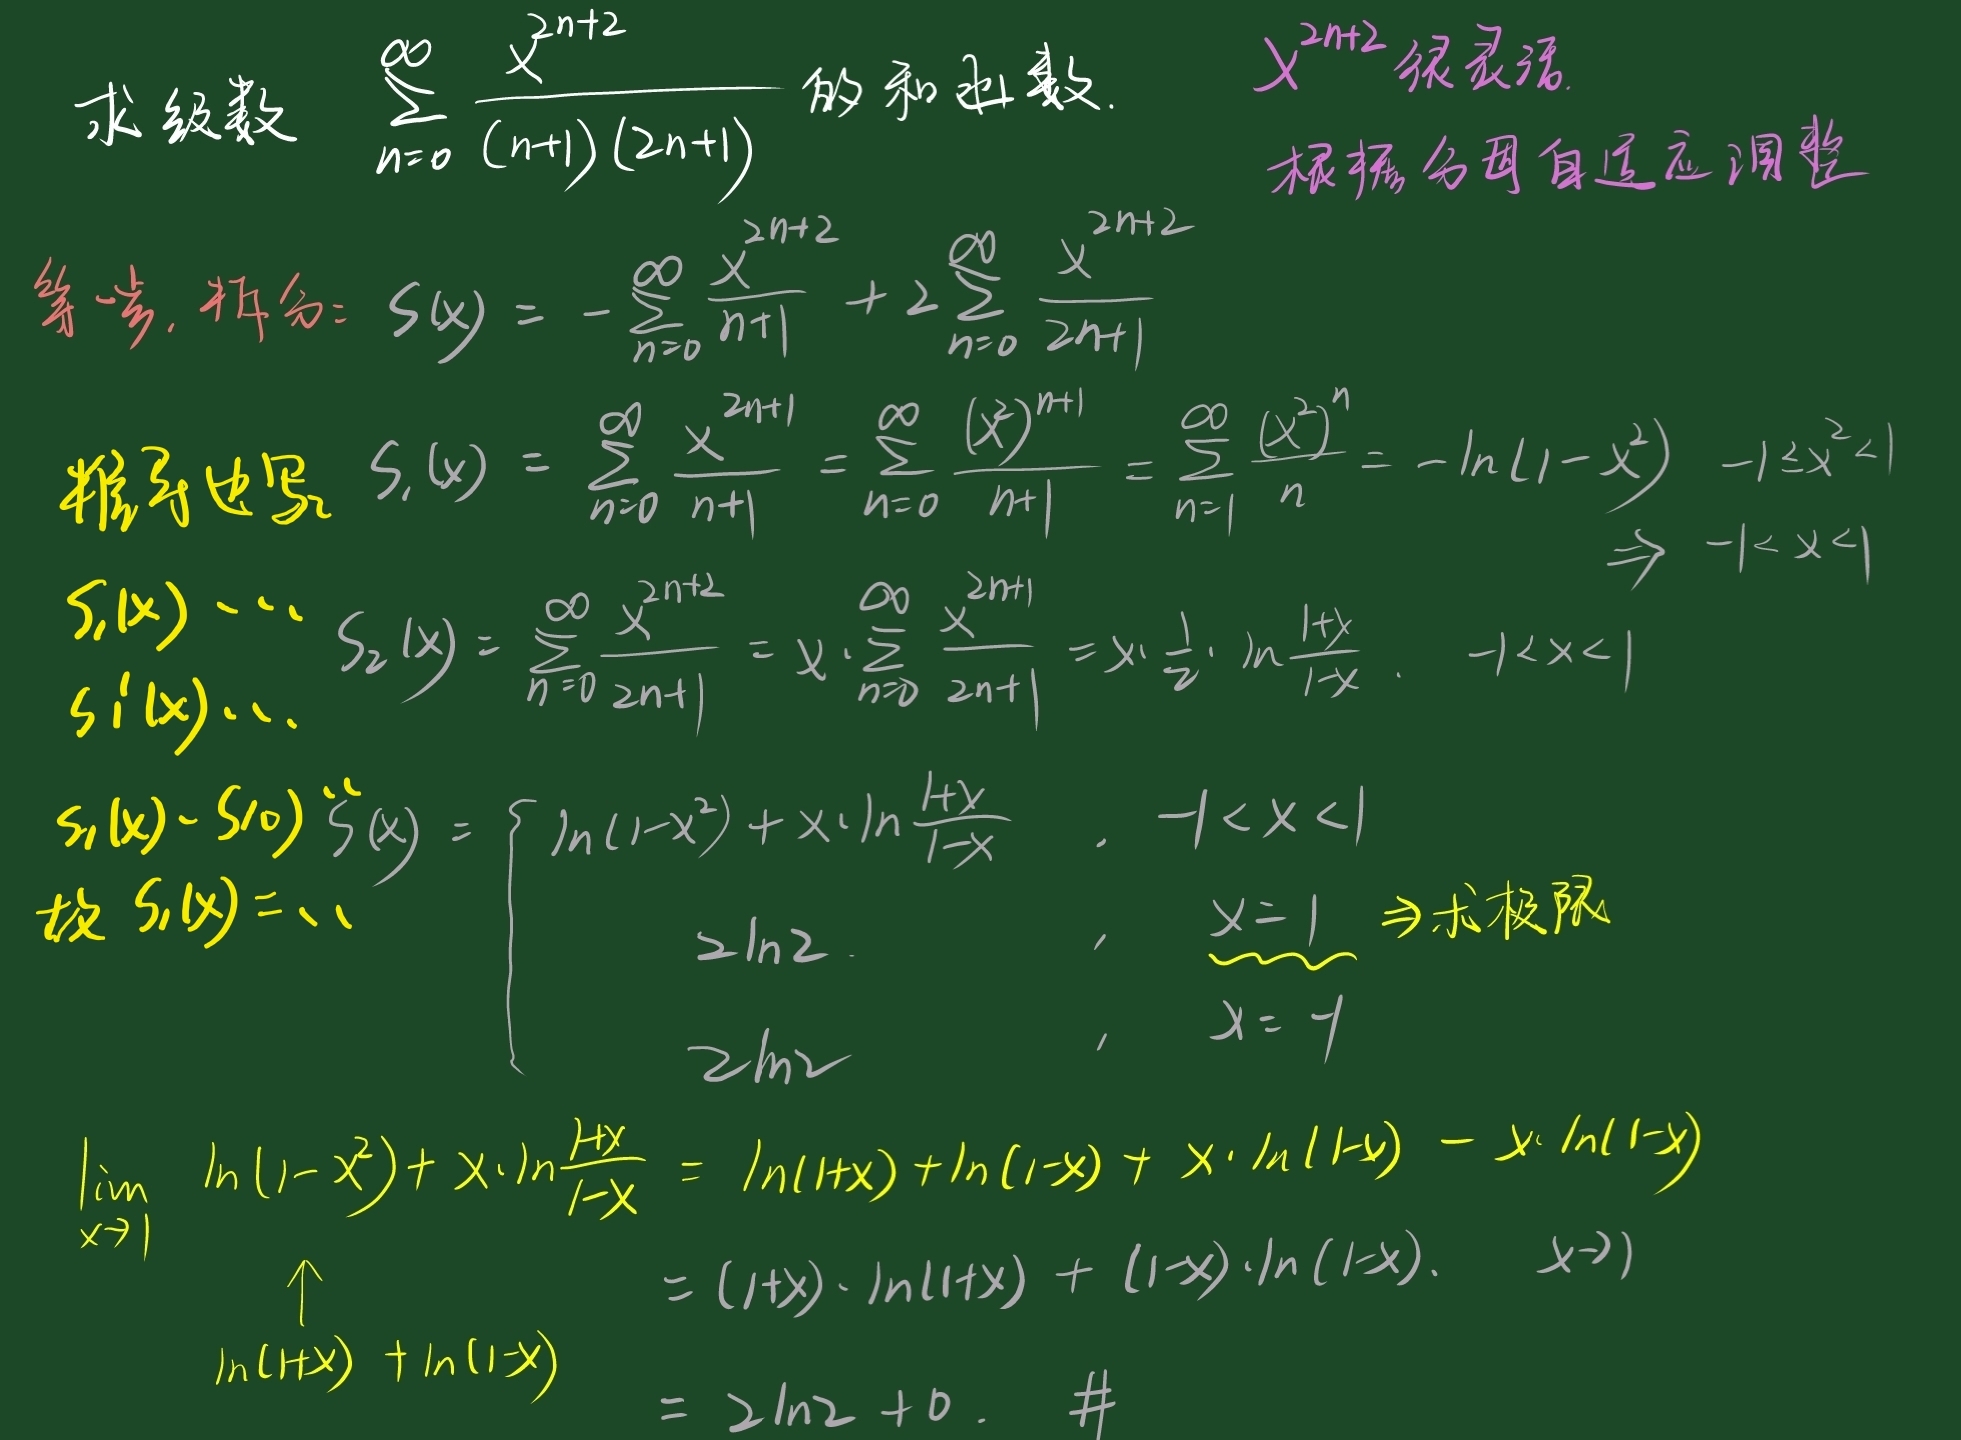 求级数 $\sum_{n=0}^{\infty} \frac{x^{2n+2}}{(n+1)(2n+1)}$ 的和函数.
$x^{2n+2}$ 很灵活.
根据分母自适应调整
第一步, 拆分: $S(x) = -\sum_{n=0}^{\infty} \frac{x^{2n+2}}{n+1} + 2\sum_{n=0}^{\infty} \frac{x^{2n+2}}{2n+1}$
推导也写
$S_1(x) = \sum_{n=0}^{\infty} \frac{x^{2n+1}}{n+1} = \sum_{n=0}^{\infty} \frac{(x^2)^{n+1}}{n+1} = \sum_{n=1}^{\infty} \frac{(x^2)^n}{n} = -\ln(1-x^2)$  $-1 \le x^2 < 1$
$\Rightarrow -1 < x < 1$
$S_1(x)$ ...
$S_2(x) = \sum_{n=0}^{\infty} \frac{x^{2n+2}}{2n+1} = x \cdot \sum_{n=0}^{\infty} \frac{x^{2n+1}}{2n+1} = x \cdot \frac{1}{2} \cdot \ln\frac{1+x}{1-x}.$  $-1 < x < 1$
$S_1'(x)$ ...
$S_1(x) - S(0)$ ..
故 $S_1(x) =$ ..
$S(x) = \begin{cases} \ln(1-x^2) + x \cdot \ln\frac{1+x}{1-x}, & -1 < x < 1 \\ 2\ln2. , & x = 1 \\ 2\ln2 , & x = -1 \end{cases}$
⇒求极限
$\lim_{x \to 1} \ln(1-x^2) + x \cdot \ln\frac{1+x}{1-x} = \ln(1+x) + \ln(1-x) + x \cdot \ln(1-x) - x \cdot \ln(1-x)$
$= (1+x) \cdot \ln(1+x) + (1-x) \cdot \ln(1-x).$  $x \to 1$
↑
$\ln(1+x) + \ln(1-x)$
$= 2\ln2 + 0.$  #